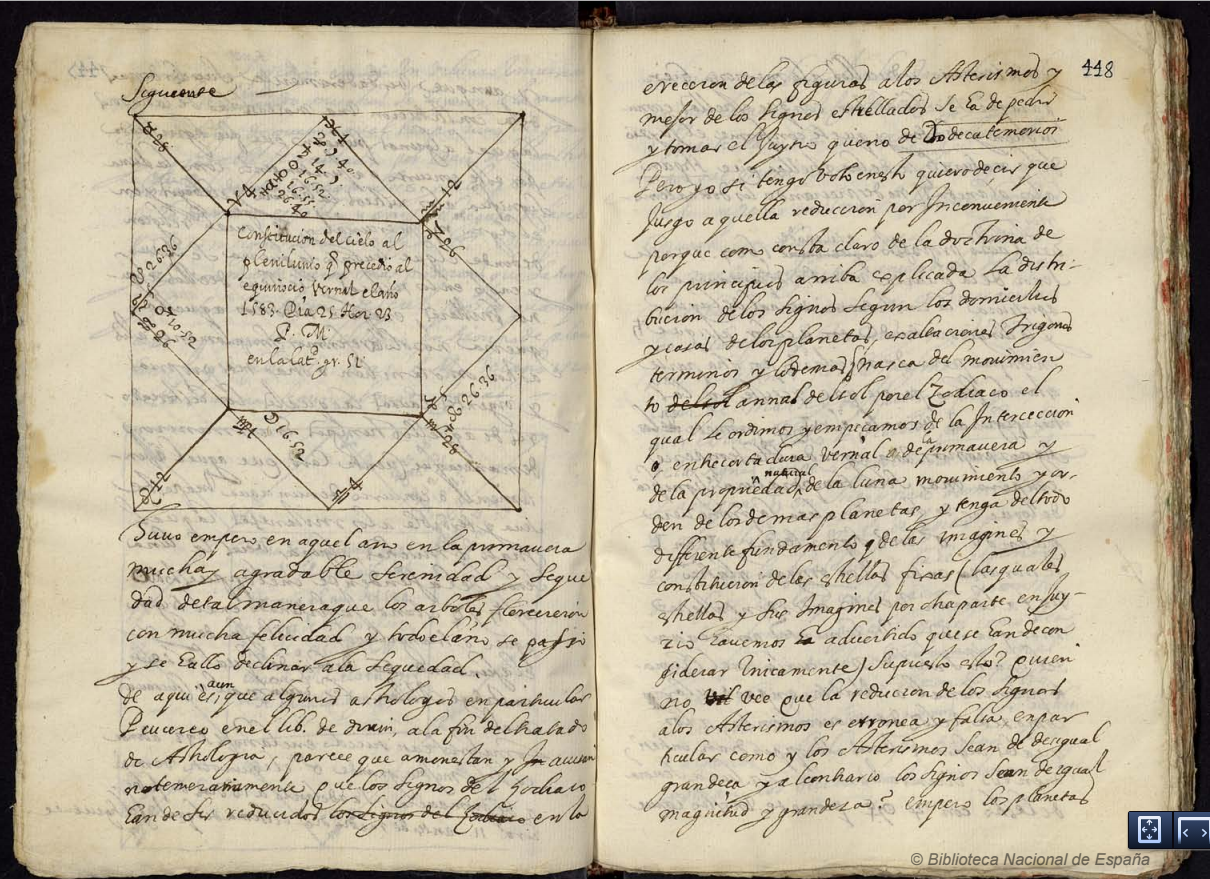 Siguiente
Constitucion del cielo al
plenilunio q̃ precedio al
equinocio vernal el año
1583. Dia 25 Hor 23
P. M.
en la lat.ᵈ gr. 51
Tuuo empero en aquel año en la primauera
mucha y agradable serenidad y seque
dad de tal manera que los arboles florecieron
con mucha felicidad y todo el año se passo
y se hallo declinar a la sequedad.
de aqui es, aun que algunos astrologos en particular
Peucero en el lib. de diuin, a la fin del tratado
de Astrologia, parece que amonestan y
no temerariamente que los signos del Zodiaco
han de ser reducidos los signos del Zodiaco en la
448
ereccion de las figuras a los Asterismos y
mejor de los signos estrellados se ha de pedir
y tomar el Juyzio que no de Dodecatemorios
Pero yo si tengo voto en esto quiero decir que
Jusgo aquella reduccion por Inconueniente
porque como consta claro de la doctrina de
los principios arriba explicada La distri-
bucion de los signos segun los domicilios
y casas de los planetas, exaltaciones Trigonos
terminos y lo demas nasca del mouimien
to del sol annal del sol por el Zodiaco el
qual le ordimos y empecamos de la Interceccion
o en hecortadura vernal o de la primauera y
de la propriedad natural de la luna mouimiento y or-
den de los demas planetas, y tenga del todo
differente fundamento q de las imagines y
constitucion de las estrellas fixas (las quales
estrellas y sus Imagines por otra parte en Juy-
zio hauemos aduertido que se han de con
siderar Unicamente) Supuesto esto? quien
no vee que la reducion de los signos
a los Asterismos es erronea y falsa, en par
ticular como y los Asterismos sean de desigual
grandeça y al contrario los signos sean de igual
magnitud y grandeza? empero los planetas
© Biblioteca Nacional de España